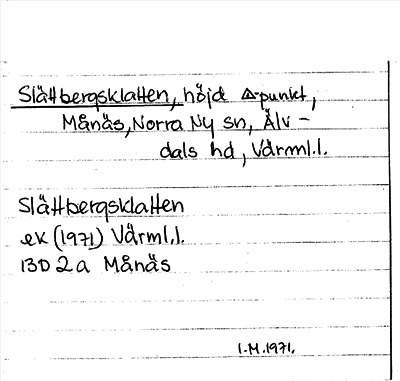 Slättbergsklatten, höjd △-punkt,
Månäs, Norra Ny sn, Älv-
dals hd, Värml.l.
Slättbergsklatten
ek (1971) Värml.l.
13D 2a Månäs
I.M.1971.